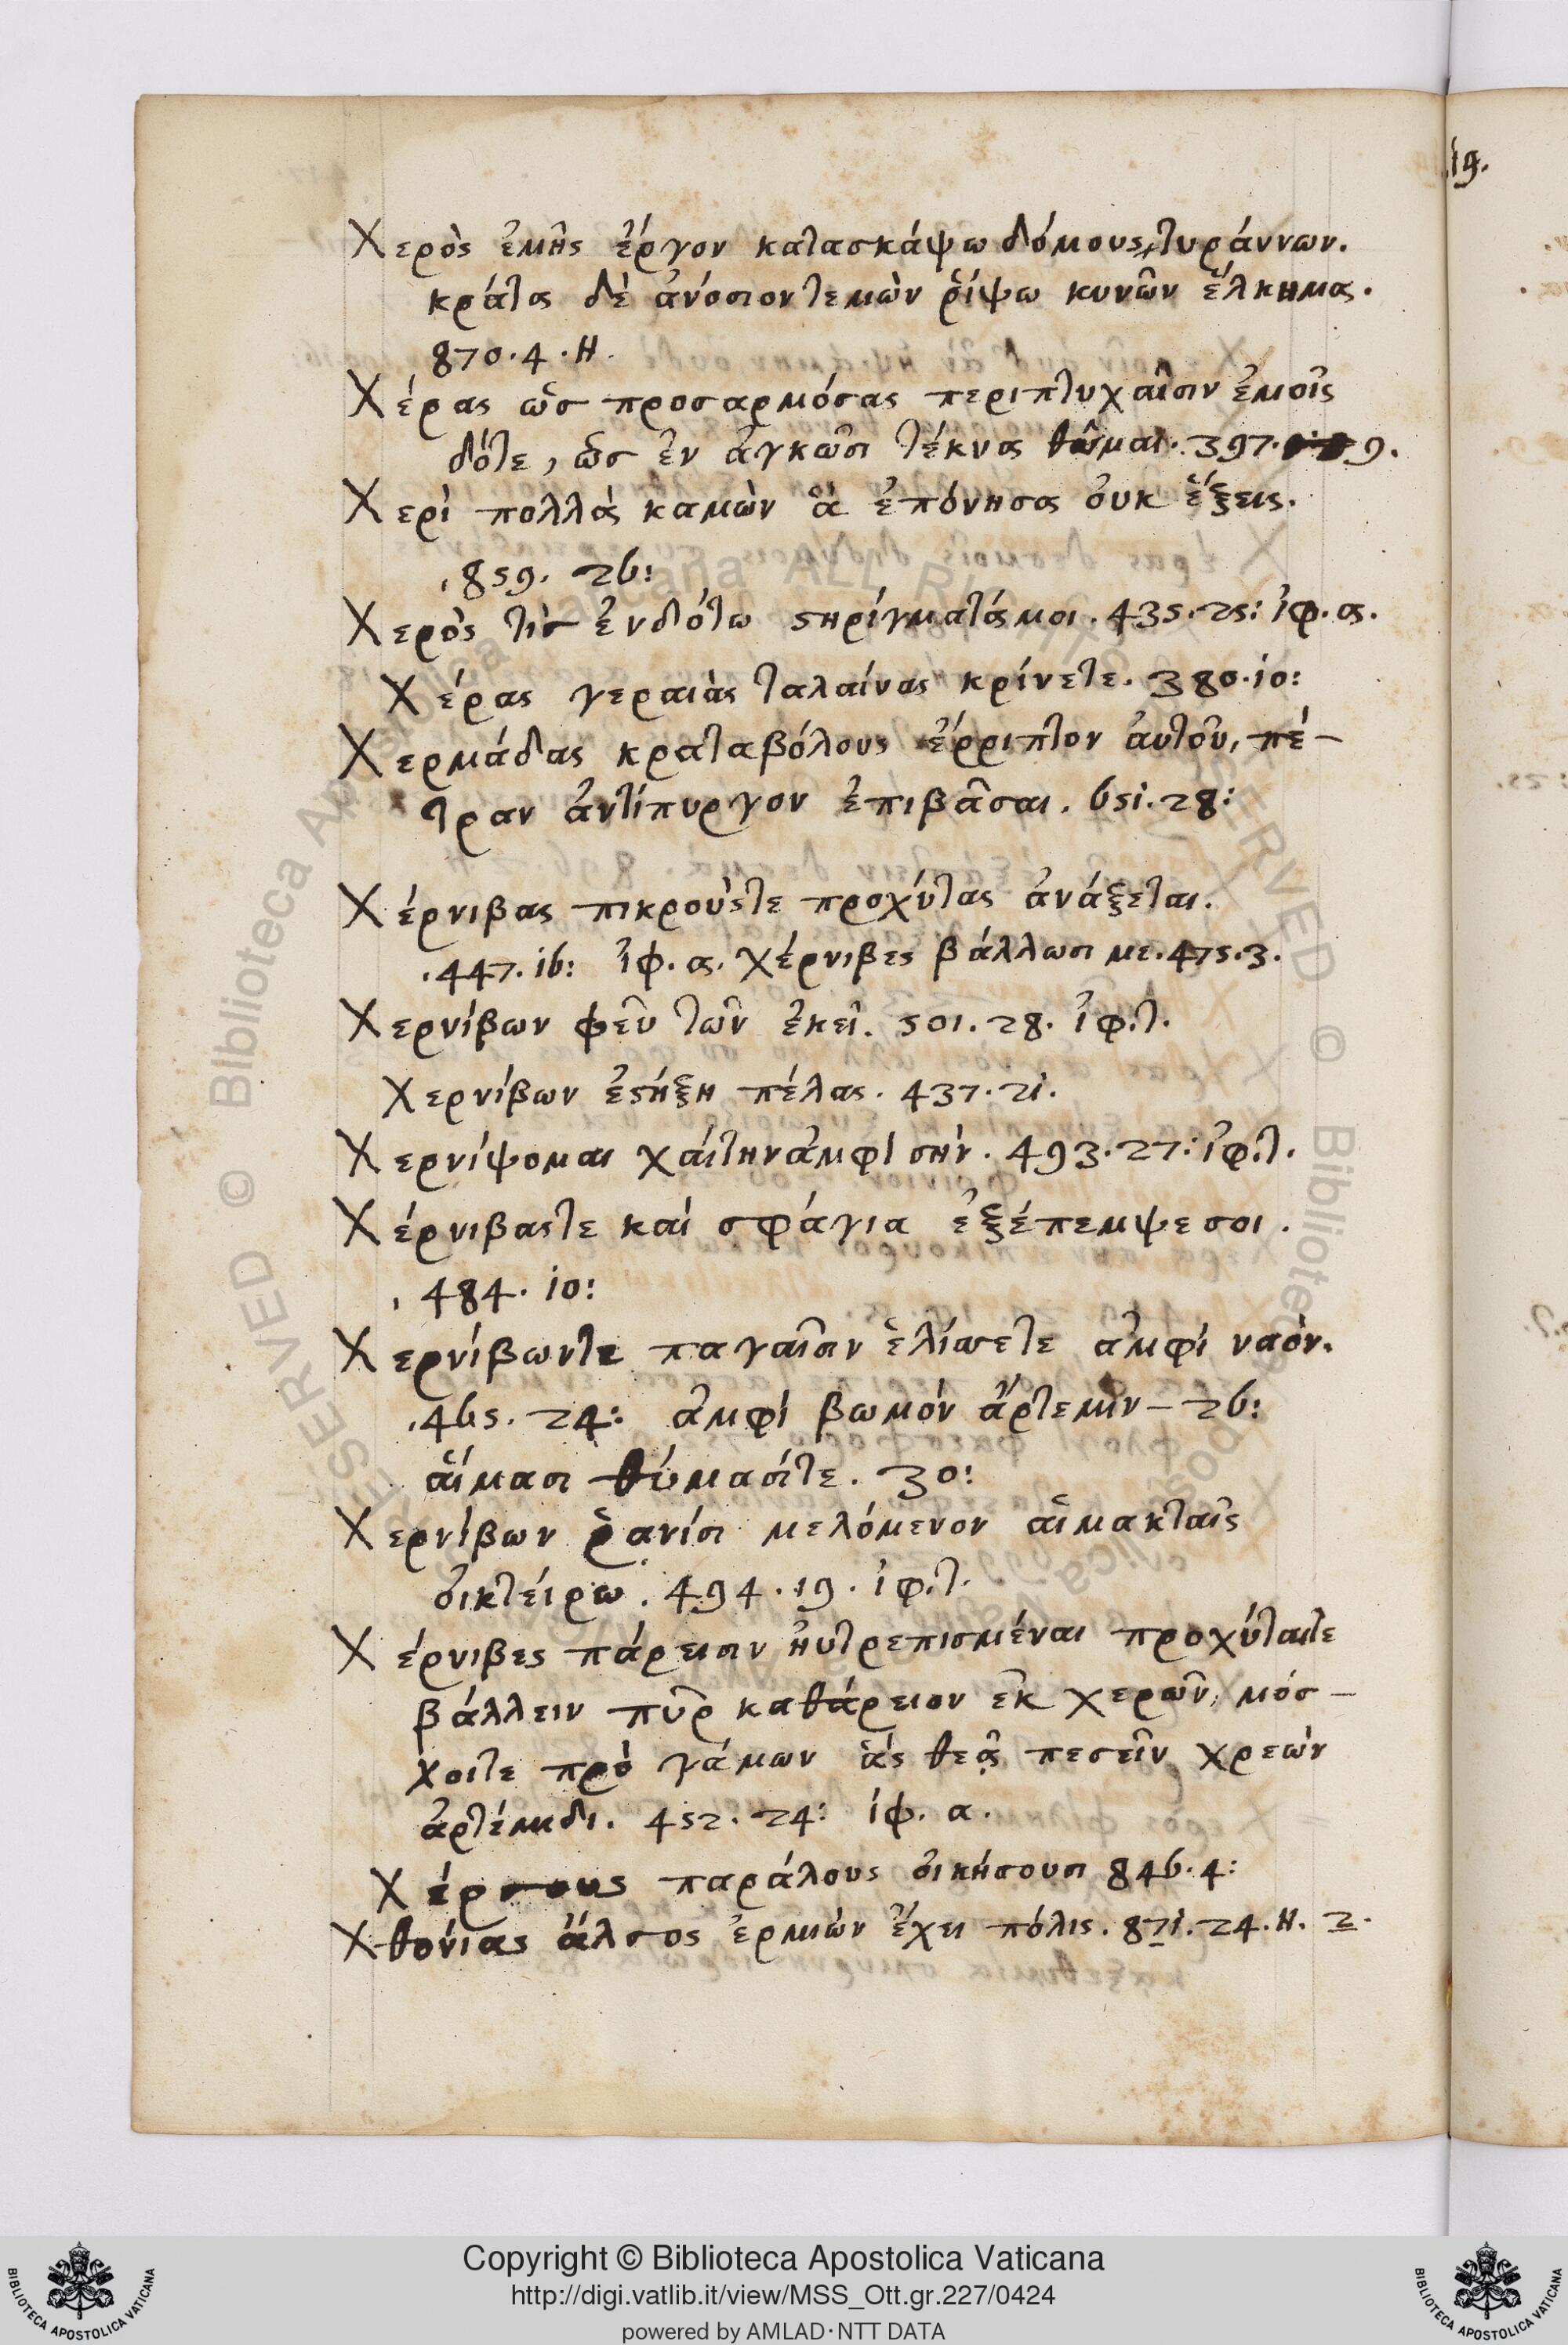 ιg.
Χερὸς ἐμῆς ἔργον κατασκάψω δόμους τυράννων.
κρᾶτα δὲ ἀνόσιον τεμὼν ῥίψω κυνῶν ἕλκημα.
870.4.H.
Χέρας ὡς προσαρμόσας περιπτυχαῖσιν ἐμοῖς
δότε, ὡς ἐν ἀγκῶσι τέκνα θῶμαι. 397. 9.
Χερὶ πολλὰ καμὼν ἃ ἐπόνησα οὐκ ἕξεις.
.859. 26:
Χερός τις ἐνδότω στηρίγματά μοι. 435.25: ἰφ. α.
Χέρας γεραιὰς ταλαίνας κρίνετε. 380.10:
Χερμάδας κραταβόλους ἔρριπτον αὐτοῦ, πέ-
τραν ἀντίπυργον ἐπιβᾶσαι. 651.28:
Χέρνιβας πικρούς τε προχύτας ἀνάξεται.
.447.16: ἰφ. α. χέρνιβες βάλλωσι με. 475.3.
Χερνίβων φεῦ τῶν ἐκεῖ. 501.28. ἰφ.τ.
Χερνίβων ἐστήξη πέλας. 437.21.
Χερνίψομαι χαίτην ἀμφὶ σήν. 493.27: ἰφ.τ.
Χέρνιβάς τε καὶ σφάγια ἐξέπεμψε σοι.
.484.10:
Χερνίβων τε παγαῖσιν ἑλίσσετε ἀμφὶ ναόν.
.465.24: ἀμφὶ βωμὸν ἄρτεμιν – 26:
αἵμασι θύμασί τε. 30:
Χερνίβων ῥανίσι μελόμενον αἱμακταῖς
οἰκτείρω. 494.19. ἰφ.τ.
Χέρνιβες πάρεισιν ηὐτρεπισμέναι προχύται τε
βάλλειν πῦρ καθάρειον ἐκ χερῶν, μόσ-
χοι τε πρὸ γάμων ἃς θεᾷ πεσεῖν χρεὼν
ἀρτέμιδι. 452.24: ἰφ. α.
Χέρσους παράλους οἰκήσουσι 846.4:
Χθονίας ἄλσος ἑρμιὼν ἔχει πόλις. 871.24.H. 2.
Copyright © Biblioteca Apostolica Vaticana
http://digi.vatlib.it/view/MSS_Ott.gr.227/0424
powered by AMLAD·NTT DATA
BIBLIOTECA APOSTOLICA VATICANA
BIBLIOTECA APOSTOLICA VATICANA